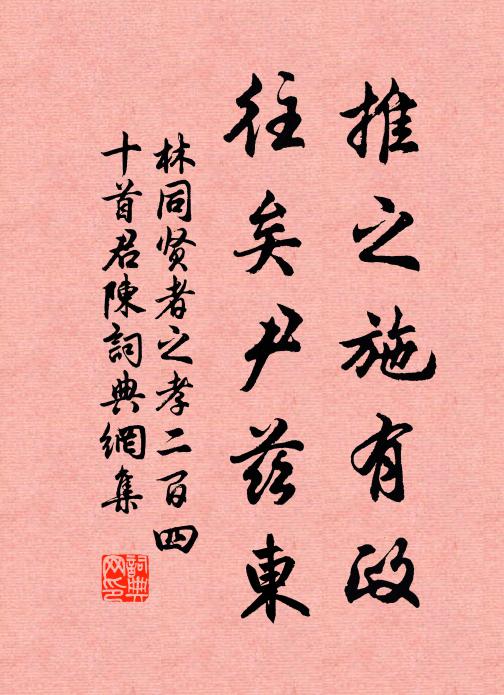 推之施有政
往矣尹茲東
林同贤者之孝二百四
十首君陳詞典網集
詞典
网印